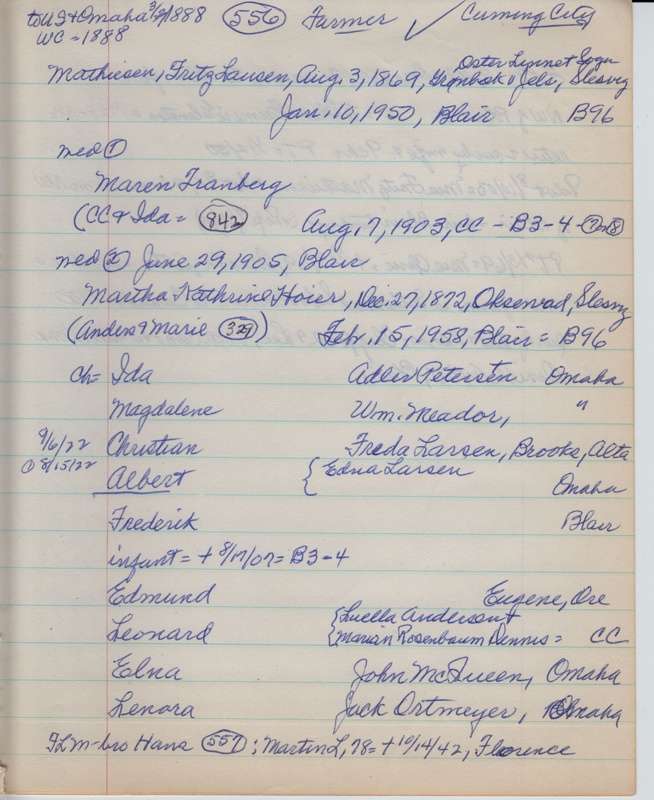 to US & Omaha 3/9/1888 (556) Farmer ✓ Cuming City
WC = 1888
Oster Linnet Sogn
Mathiesen, Fritz Lausen, Aug. 3, 1869, Grønbæk, Jels, Slesvig
Jan. 10, 1950, Blair B96
med ①
Maren Tranberg
(CC & Ida = (842) Aug. 7, 1903, CC - B3-4
med ② June 29, 1905, Blair
Martha Kathrine Hoier, Dec. 27, 1872, Oksenvad, Slesvig
(Anders & Marie (329)) Feb. 15, 1958, Blair = B96
Ch = Ida Adler Petersen Omaha
Magdalene Wm. Meador, "
9/6/22 Christian Freda Larsen, Brooks, Alta
① 8/15/22 Albert { Edna Larsen Omaha
Frederik Blair
infant = + 8/17/07 = B3-4
Edmund Eugene, Ore
{ Luella Anderson +
Leonard { Marian Rosenbaum Dennis = CC
Elna John McQueen, Omaha
Lenora Jack Ortmeyer, Omaha
FLM - bro Hans (557) ; Martin L, 78 = + 10/14/42, Florence